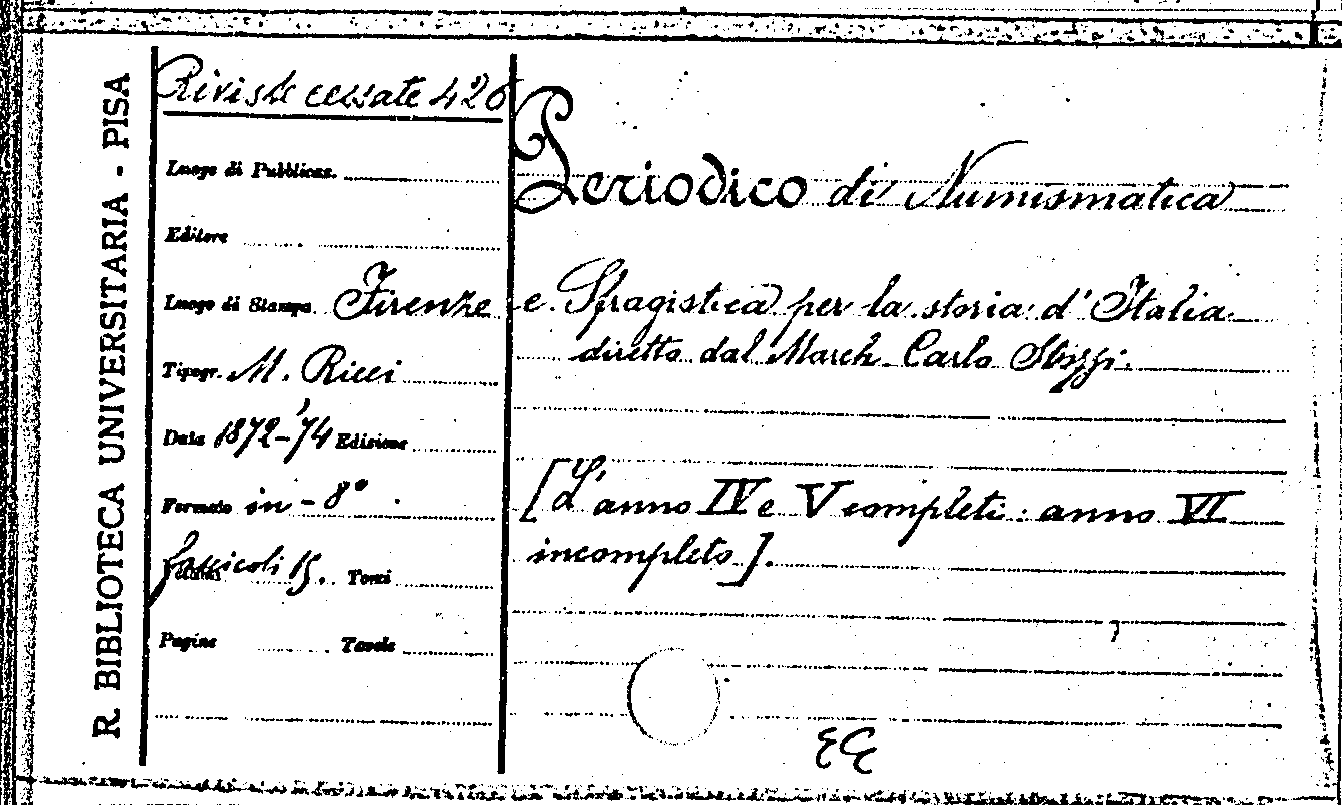 R. BIBLIOTECA UNIVERSITARIA - PISA
Riviste cessate 426
Luogo di Pubblicaz.
Editore
Luogo di Stampa Firenze
Tipogr. M. Ricci
Data 1872-'74 Edizione
Formato in-8°
fascicoli 15. Tomi
Pagine Tavole
Periodico di Numismatica
e Sfragistica per la storia d'Italia
diretto dal March. Carlo Strozzi.
[L'anno IV e V completi: anno VI
incompleto].